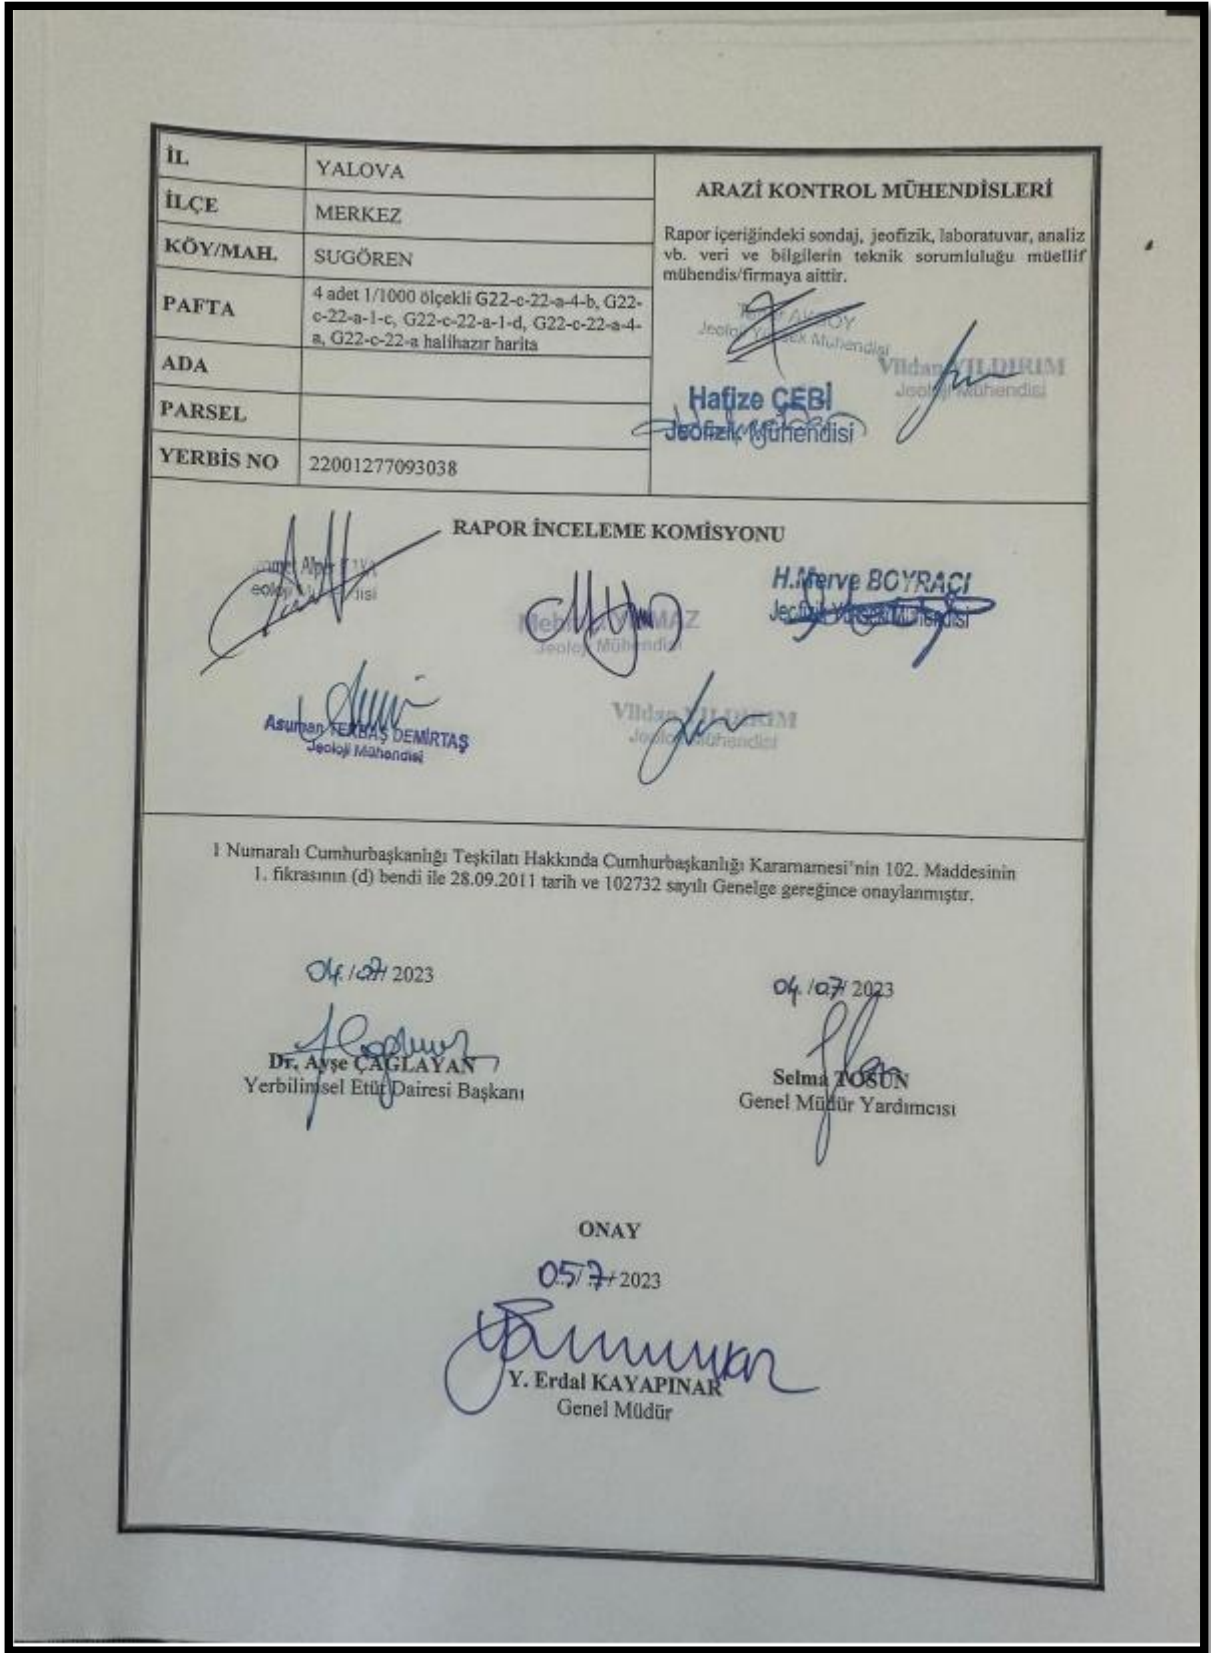 İL
YALOVA
İLÇE
MERKEZ
KÖY/MAH.
SUGÖREN
PAFTA
4 adet 1/1000 ölçekli G22-c-22-a-4-b, G22-
c-22-a-1-c, G22-c-22-a-1-d, G22-c-22-a-4-
a, G22-c-22-a halihazır harita
ADA
PARSEL
YERBİS NO
22001277093038
ARAZİ KONTROL MÜHENDİSLERİ
Rapor içeriğindeki sondaj, jeofizik, laboratuvar, analiz
vb. veri ve bilgilerin teknik sorumluluğu müellif
mühendis/firmaya aittir.
Jeoloji Yüksek Mühendisi
Vildan YILDIRIM
Jeoloji Mühendisi
Hafize ÇEBİ
Jeofizik Mühendisi
RAPOR İNCELEME KOMİSYONU
Alper
H.Merve BOYRACI
Jeofizik Yüksek Mühendisi
YILMAZ
Jeoloji Mühendisi
Asuman DEMİRTAŞ
Jeoloji Mühendisi
Vildan YILDIRIM
Jeoloji Mühendisi
1 Numaralı Cumhurbaşkanlığı Teşkilatı Hakkında Cumhurbaşkanlığı Kararnamesi'nin 102. Maddesinin
1. fıkrasının (d) bendi ile 28.09.2011 tarih ve 102732 sayılı Genelge gereğince onaylanmıştır.
04./07/ 2023
Dr. Ayşe ÇAĞLAYAN
Yerbilimsel Etüt Dairesi Başkanı
04./07/ 2023
Selma TOSUN
Genel Müdür Yardımcısı
ONAY
05/7/2023
Y. Erdal KAYAPINAR
Genel Müdür